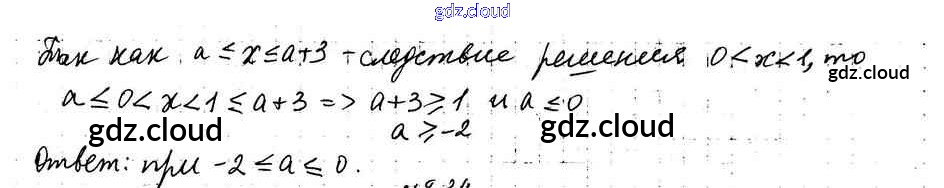 gdz.cloud
Так как a ≤ x ≤ a+3 – следствие решения 0 < x < 1, то
gdz.cloud
a ≤ 0 < x < 1 ≤ a+3 => a+3 ≥ 1 и a ≤ 0
gdz.cloud a ≥ -2 gdz.cloud
Ответ: при -2 ≤ a ≤ 0.